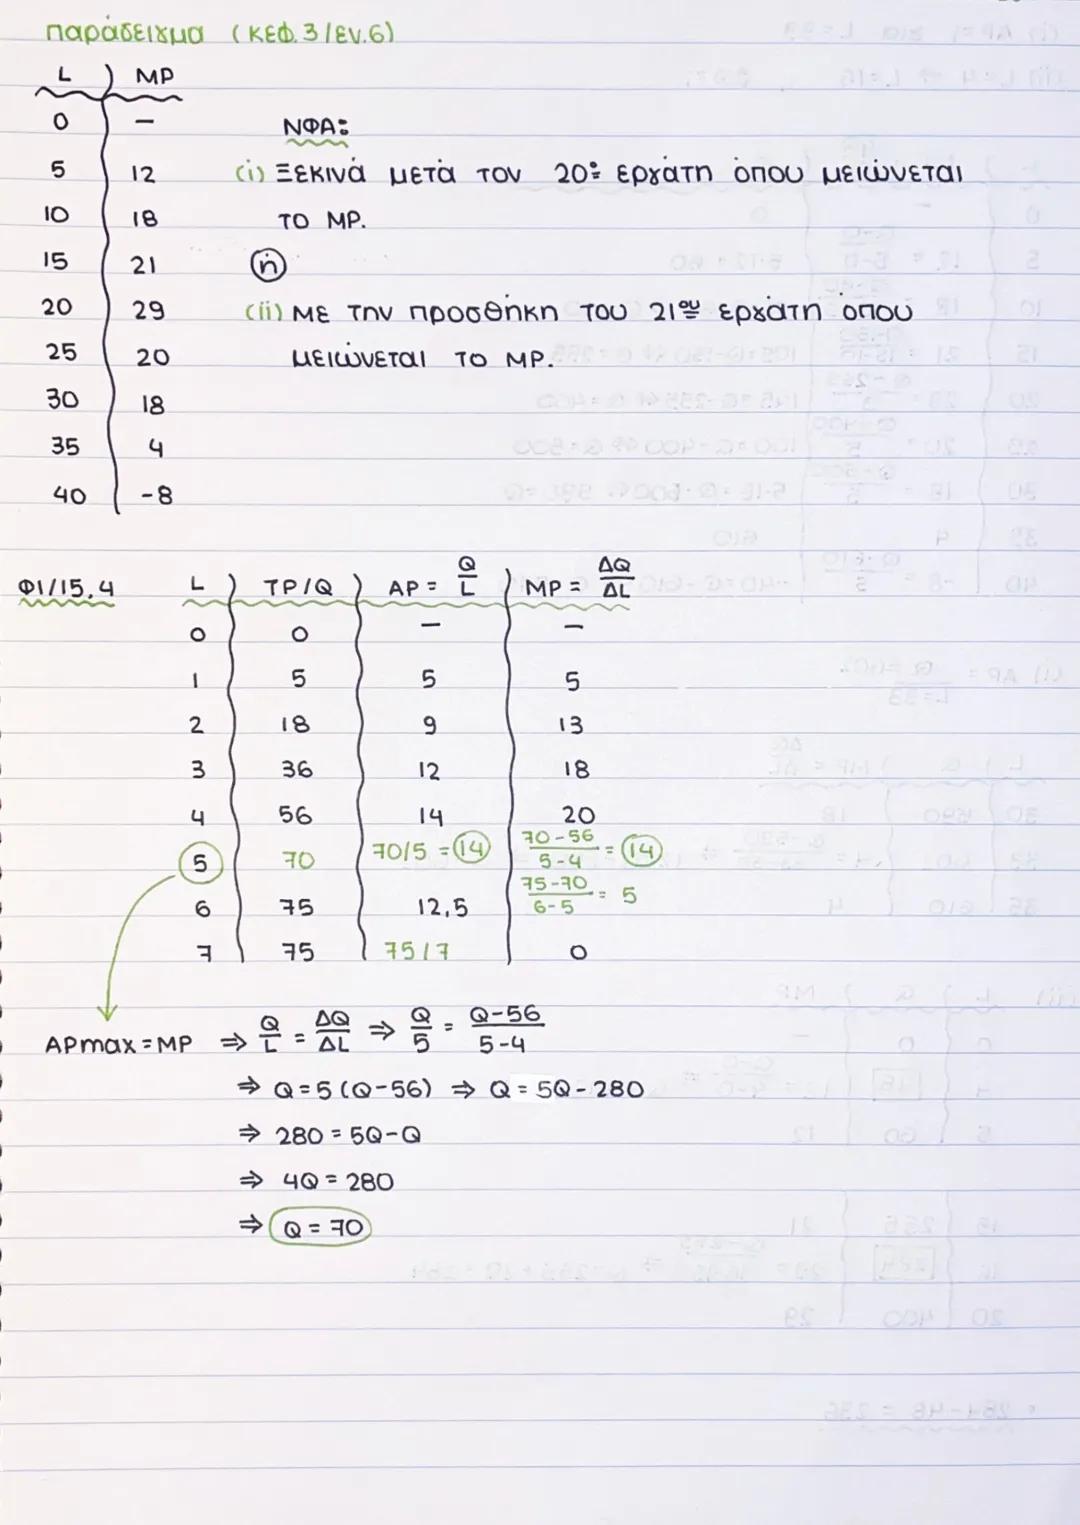 παράδειγμα (κεφ.3/εν.6)
L MP
0 –
ΝΦΑ:
5 12 (i) Ξεκινά μετά τον 20º εργάτη όπου μειώνεται
10 18 το MP.
15 21 (ή)
20 29 (ii) Με την προσθήκη του 21ου εργάτη όπου
25 20 μειώνεται το MP.
30 18
35 4
40 -8
Φ1/15.4 L TP/Q AP = Q/L MP = ΔQ/ΔL
0 0 – –
1 5 5 5
2 18 9 13
3 36 12 18
4 56 14 20
5 70 70/5 = 14 70-56/5-4 = 14
6 75 12,5 75-70/6-5 = 5
7 75 75/7 0
APmax = MP ⇒ Q/L = ΔQ/ΔL ⇒ Q/5 = Q-56/5-4
⇒ Q = 5(Q-56) ⇒ Q = 5Q-280
⇒ 280 = 5Q-Q
⇒ 4Q = 280
⇒ Q = 70